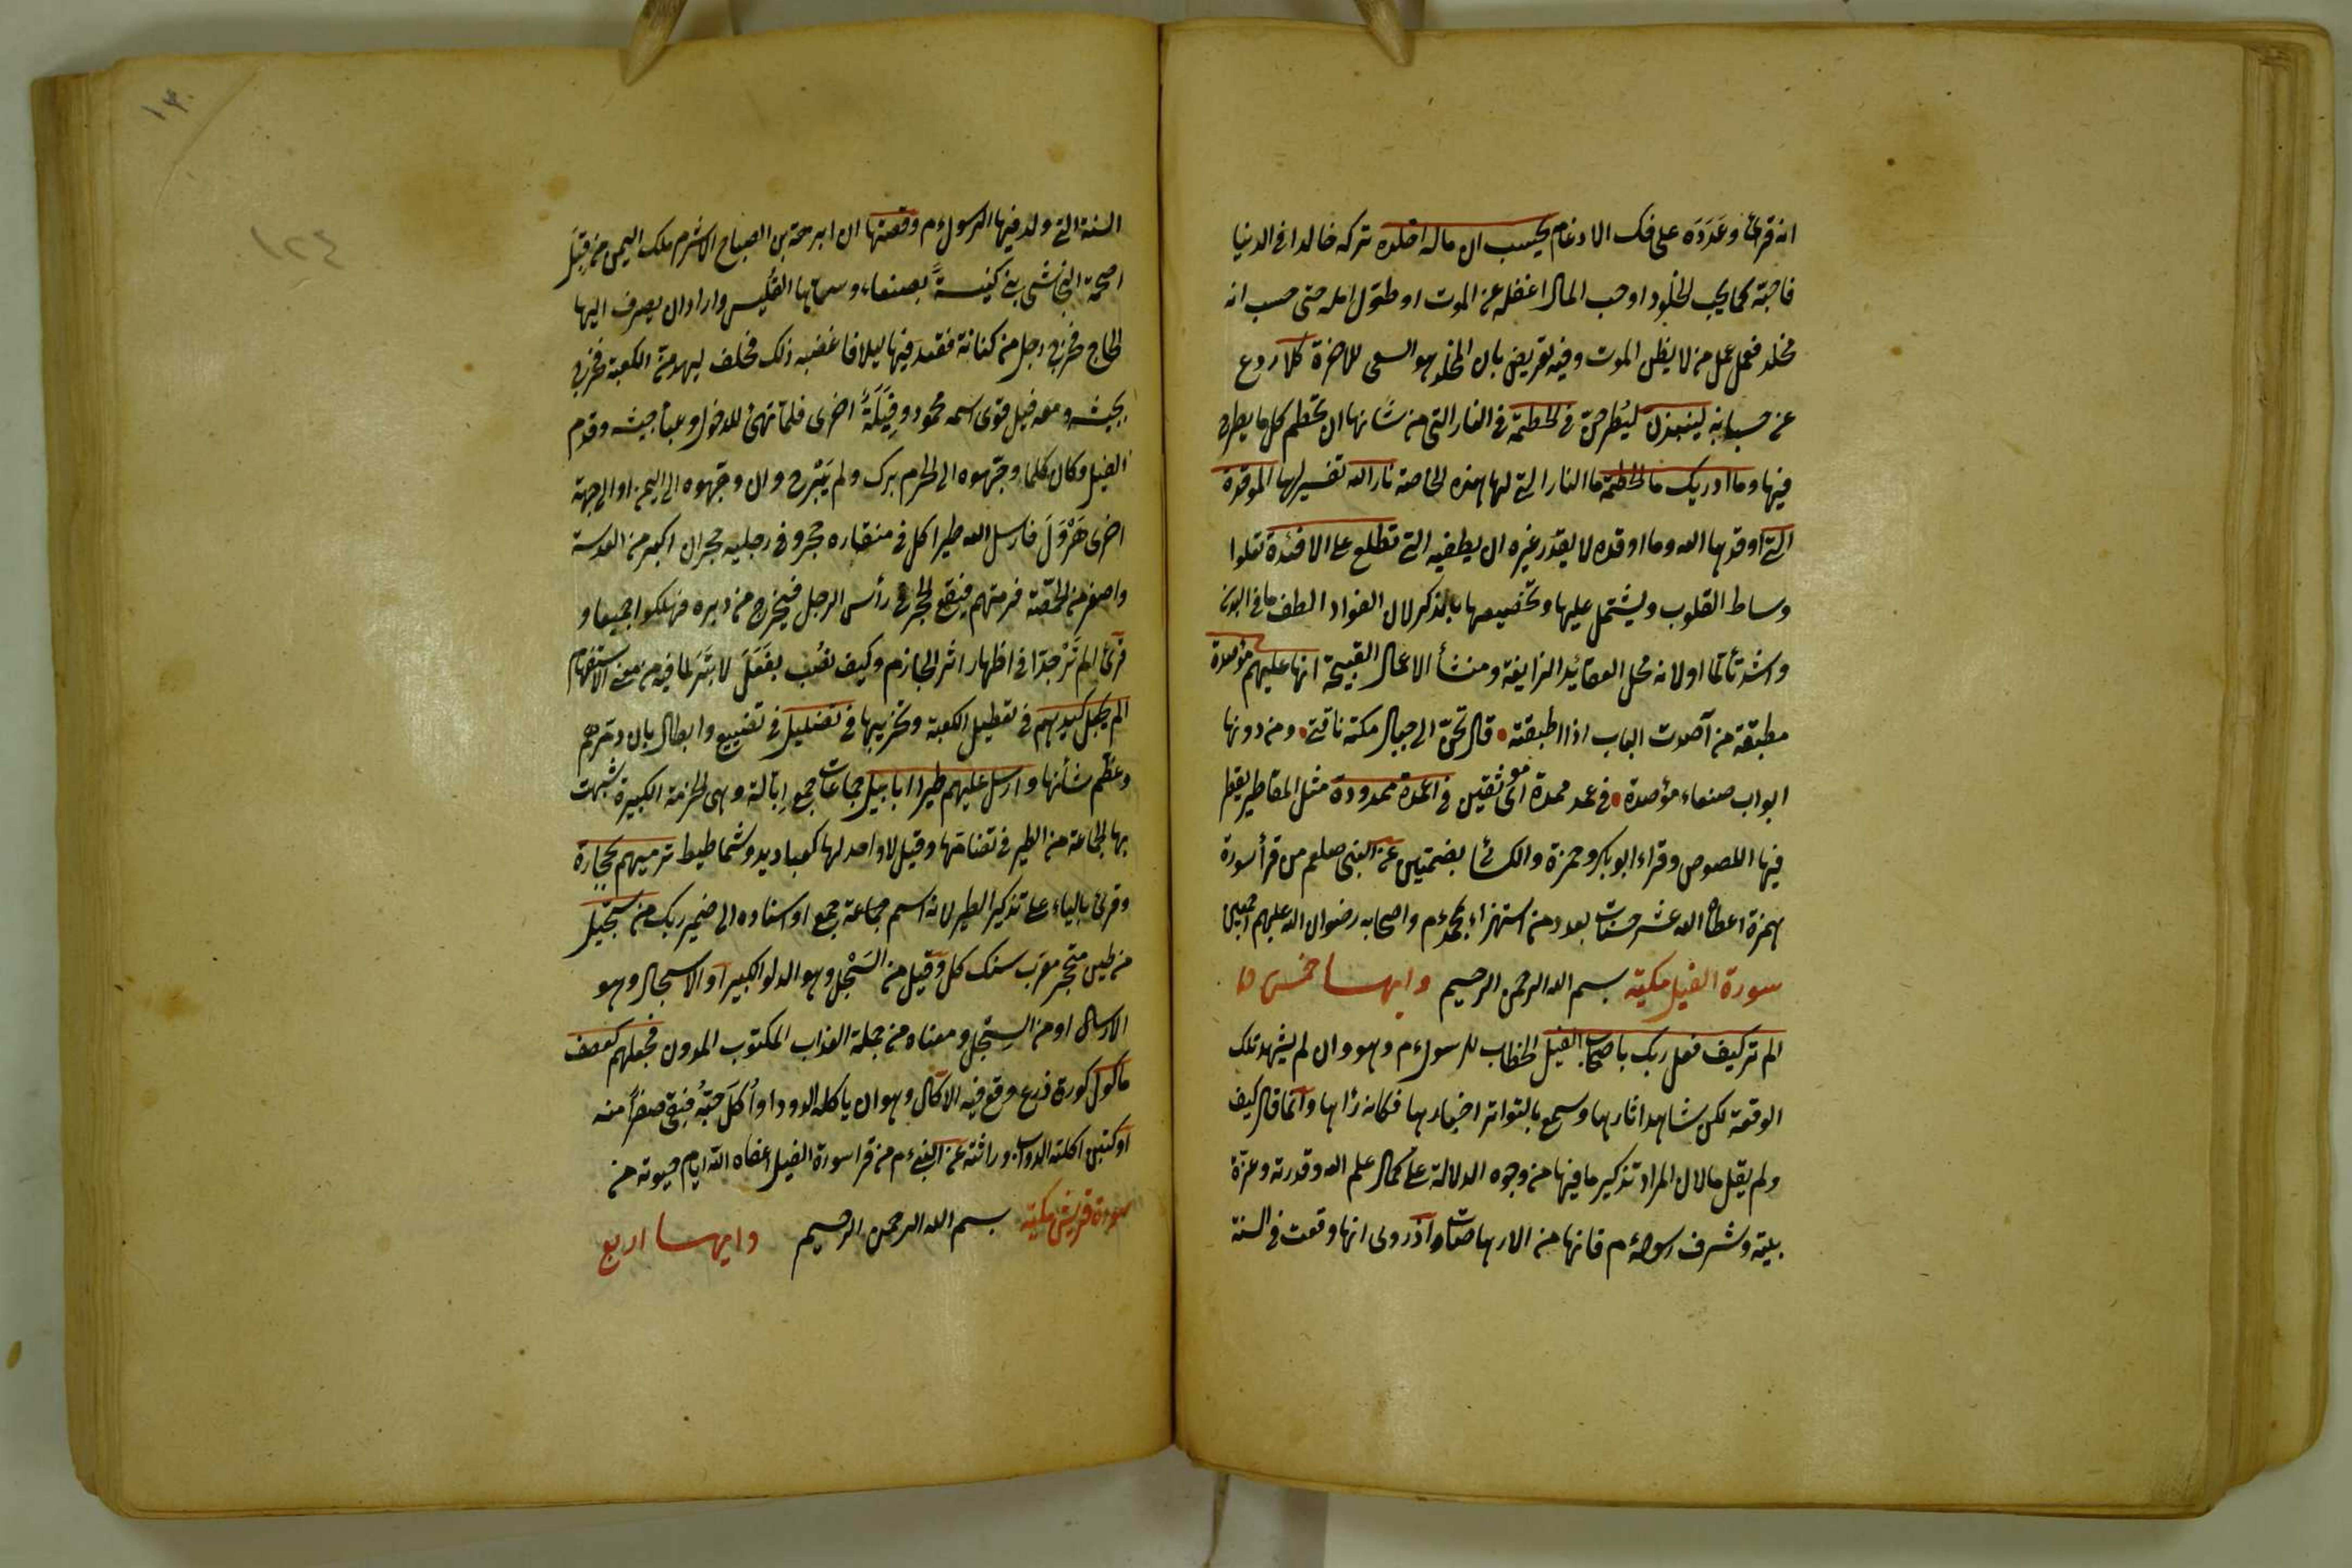 انه قرئ وعَدَدَه على فك الادغام يحسب ان ماله اخلده تركه خالدا في الدنيا
فاحبّه كما يحب الخلود او حب المال اغفله عن الموت او طوّل امله حتى حسب انه
مخلد فعمل عمل من لا يظن الموت وفيه تعريض بان المخلد هو السعى للاخرة كلا ردع
عن حسبانه لينبذن ليُطرحنّ في الحطمة في النار التى من شانها ان تحطم كل ما يطرح
فيها وما ادريك ما الحطمة ما النار التي لها هذه الخاصة نار الله تفسير لها الموقدة
التي اوقدها الله وما اوقده لا يقدر غيره ان يطفيه التي تطلع على الافئدة تعلوا
وساط القلوب ويشتمل عليها وتخصيصها بالذكر لان الفواد الطف ما في البدن
واشد تألما او لانه محل العقائد الزايفة ومنشأ الاعمال القبيحة انها عليهم مؤصدة
مطبقة من آصدت الباب اذا اطبقته • قال تحنّ الى جبال مكة ناقتي • ومن دونها
ابواب صنعاء مؤصدة • في عمد ممددة اى موثقين في اعمدة ممدودة مثل المقاطر يقطر
فيها اللصوص وقراء ابوبكر وحمزة والكسائى بضمتين عن النبى صلعم من قرأ سورة
همزة اعطاه الله عشر حسنات بعدد من استهزاء بمحمد ءم واصحابه رضوان الله عليهم اجمعين
سورة الفيل مكية بسم الله الرحمن الرحيم وايها خمس ٥
الم تر كيف فعل ربك باصحاب الفيل الخطاب للرسول ءم وهو وان لم يشهد تلك
الوقعة لكن شاهد اثارها وسمع بالتواتر اخبارها فكانه رٰاها وانما قال كيف
ولم يقل ما لان المراد تذكير ما فيها من وجوه الدلالة على كمال علم الله وقدرته وعزة
بيته وشرف رسوله ءم فانها من الارهاصات اذ روى انها وقعت في السنة
السنة التي ولد فيها الرسول ءم وقصتها ان ابرهة بن الصباح الاشرم ملك اليمن من قِبَلِ
اصحمة النجاشى بنى كنيسةً بصنعاء وسماها القُليس واراد ان يصرف اليها
الحاج فخرج رجل من كنانة فقعد فيها ليلا فاغضبه ذلك فحلف ليهدمنّ الكعبة فخرج
بجيشه ومعه فيل قوى اسمه محمود وفِيَلَةٌ اخرى فلما تهيئ للدخول وعبأ جيشه وقدم
الفيل وكان كلما وجّهوه الى الحرم برك ولم يَبْرح وان وجّهوه الى اليمن او الى جهة
اخرى هَرْوَلَ فارسل الله طيرا كل في منقاره حجر وفي رجليه حجران اكبر من العدسة
واصغر من الحمّصة فرمتهم فيقع الحجر في رأس الرجل فيخرج من دبره فهلكوا جميعا و
قرئ الم تَرْ جدّا في اظهار اثر الجازم وكيف نصب بفَعَلَ لا بتَرَ لما فيه من معنى الاستفهام
الم يجعل كيدهم في تعطيل الكعبة وتخريبها في تضليل في تضييع وابطال بان دمّرهم
وعظّم شأنها وارسل عليهم طيرا ابابيل جماعات جمع اِبّالة وهى الحزمة الكبيرة شبهت
بها الجماعة من الطير في تضامّها وقيل لا واحد لها كعباديد وشماطيط ترميهم بحجارة
وقرئ بالياء على تذكير الطير لانه اسم جماعة جمع او اسناده الى ضمير ربك من سجّيل
من طين متحجر معرّب سنك كل وقيل من السَجْل وهو الدلو الكبير او الاسجال وهو
الارسال او من السِجل ومعناه من جملة العذاب المكتوب المدون فجعلهم كعصف
ماكول كورق زرع وقع فيه الاكال وهو ان ياكله الدود او اُكل حَبّه فبقى صفرًا منه
او كتبن اكلته الدواب وراثته عن النبى ءم من قرا سورة الفيل اعفاه الله ايام حيوته من
سورة قريش مكية بسم الله الرحمن الرحيم وايها اربع
١٢٤